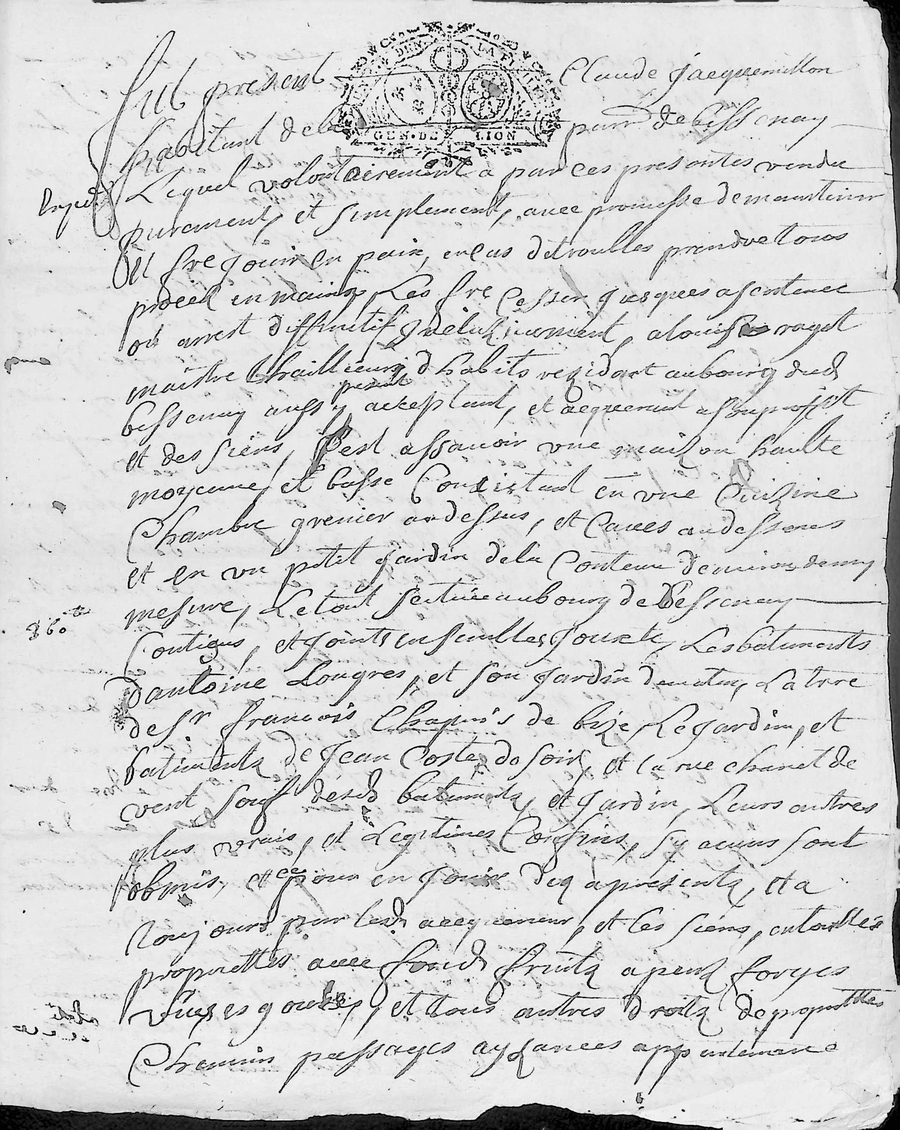 Fut present Claude Jacquemillon
GEN. DE LION
habitant de la parr de Bessenay
Lequel volontairement a par ces presentes vendu
purement, et simplement, avec promesse de maintenir
et fre jouir en paix, en cas de troubles prendre tous
procel en mains, Les fre cesser jusques a sentence
ou arrest diffinitif inclusivement, a Louis raget
maitre thaillieur d'habits rezidant au bourg dud
bessenay aussy pnt acceptant, et acquerant a son projet
et des siens, C'est assavoir une maizon haulte
moyenne, et basse Consistant en une Cuizine
Chambre grenier audessus, et Caves audessous
et en un petit Jardin de la Contenue denviron demy
mesure, Le tout scitué au bourg de Bessenay
Contigus, et joints ensembles, Jouxte, Les batiments
360
d'antoine Lougres, et son Jardin de matin, La terre
de Sr françois Chapuis de bize, Le Jardin, et
batiments de Jean Coste de soir, et la rue chanet de
vent sauf desd batiments, et Jardin, Leurs autres
plus vrais, et Legitimes Confins, sy aucuns sont
obmis, et ce pour en Jouir dez a presents, et a
toujours par led acquereur, et les siens, en toutes
proprietés avec fonds fruits apens forges
et tous autres droits de proprietes
Chemins passages ayzances appartenance